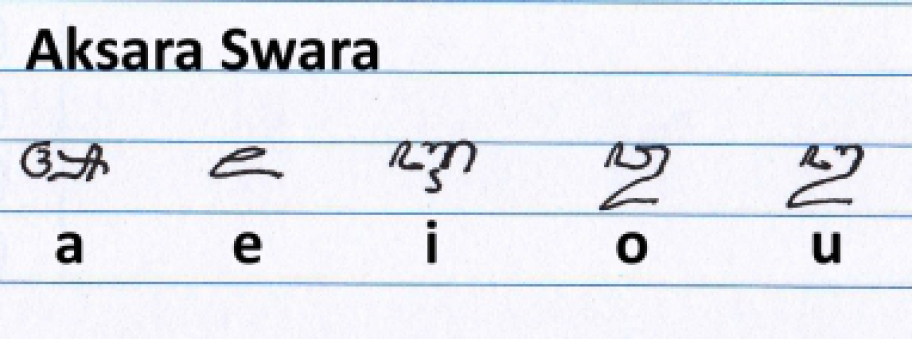 Aksara Swara
ꦄ ꦌ ꦆ ꦎ ꦈ
a e i o u